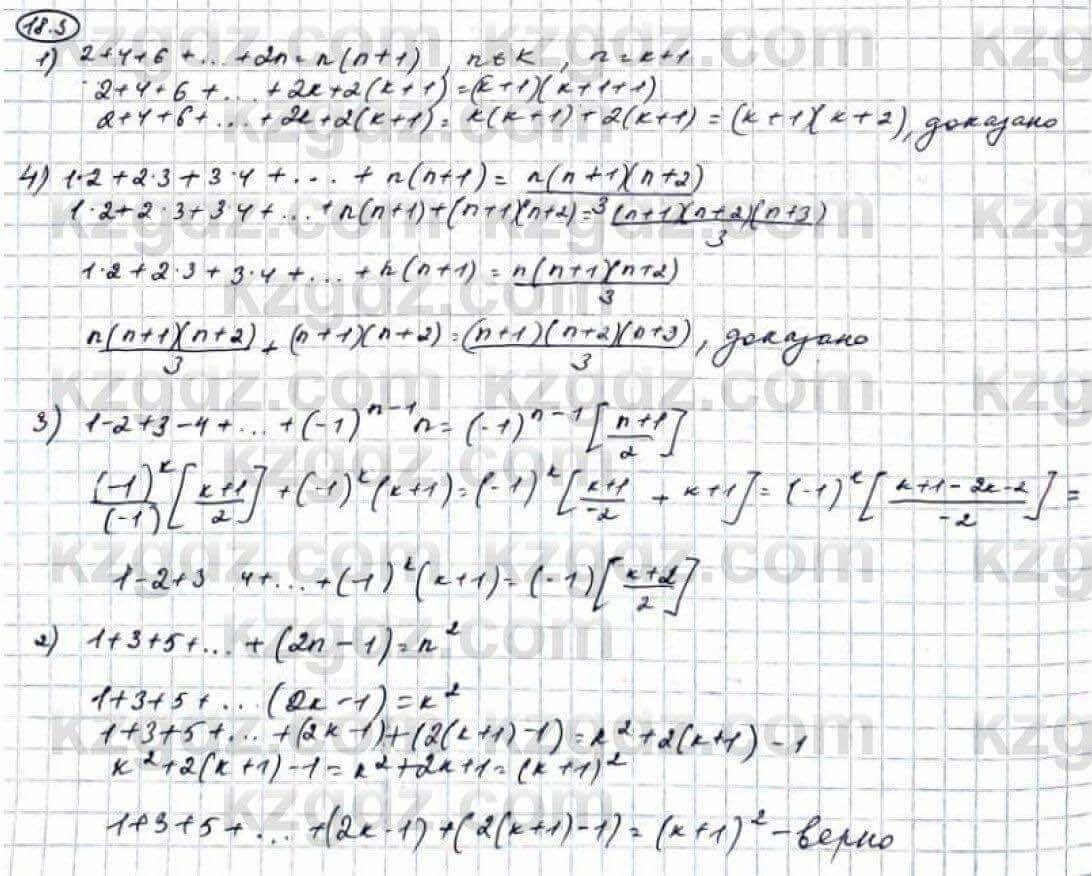 18.3
1) 2+4+6+...+2n=n(n+1), n=k, n=k+1
2+4+6+...+2k+2(k+1)=(k+1)(k+1+1)
2+4+6+...+2k+2(k+1)=k(k+1)+2(k+1)=(k+1)(k+2), доказано
4) 1·2+2·3+3·4+...+n(n+1)=n(n+1)(n+2)/3
1·2+2·3+3·4+...+n(n+1)+(n+1)(n+2)=(n+1)(n+2)(n+3)/3
1·2+2·3+3·4+...+n(n+1)=n(n+1)(n+2)/3
n(n+1)(n+2)/3+(n+1)(n+2)=(n+1)(n+2)(n+3)/3, доказано
3) 1-2+3-4+...+(-1)^(n-1) n=(-1)^(n-1)[(n+1)/2]
(-1)^k/(-1)[(k+1)/2]+(-1)^k(k+1)=(-1)^k[(k+1)/(-2)+k+1]=(-1)^k[(k+1-2k-2)/(-2)]=
1-2+3 4+...+(-1)^k(k+1)=(-1)[(k+2)/2]
2) 1+3+5+...+(2n-1)=n²
1+3+5+...(2k-1)=k²
1+3+5+...+(2k-1)+(2(k+1)-1)=k²+2(k+1)-1
k²+2(k+1)-1=k²+2k+1=(k+1)²
1+3+5+...+(2k-1)+(2(k+1)-1)=(k+1)²-верно
kzgdz.com